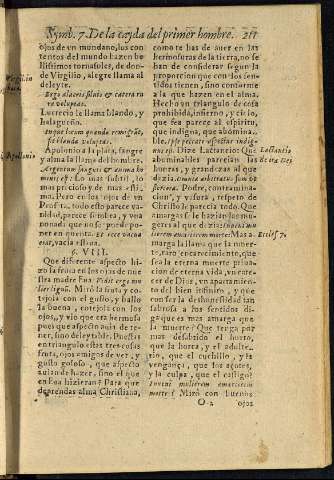 Symb. 7. De la cayda del primer hombre. 211
ojos de un mundano, los con
tentos del mundo hazen be
llissimos tornasoles, de don-
de Virgilio, alegre llama al
deleyte.
Ergo alacris silvis & cætera ru
ra voluptas.
Lucrecio le llama blando, y
halagueño.
blanda voluptas.
Apolonio la plata, sangre
y alma la llama del hombre.
Argentum sanguis & anima ho
minis est. Lo mas subtil, lo
mas precioso y de mas esti-
ma. Pero en los ojos de un
Profeta, todo esto parece va-
nidad, parece sombra, y vna
nonada que no se puede po-
ner en quenta.
vacia est
§. VIII.
Que diferente aspecto hi-
zo la fruta en los ojos de nue
stra madre Eua.
Mirò la fruta y co
tejola con el gusto, y hallo
la buena, cotejola con los
ojos, y vio que era hermosa
pues que aspecto auia de te-
ner, sino deleytable. Puestas
en triangulo estas tres cosas
fruta, ojos amigos de ver, y
gusto goloso, que aspecto
auian de hazer, sino el que
en Eua hizieran? Para que
deprendas alma Christiana,
como te has de auer en las
hermosuras de la tierra, no se
han de considerar segun la
proporcion que con los sen-
tidos tienen, sino conforme
a la que hazen en el alma.
Hecho vn triangulo de cosa
prohibida, infierno, y cielo,
que fea parece al espiritu,
que indigna, que abomina-
ble.
nis. Dize Lactancio Que
abominables parecian las
hueras, y grandezas al que
dezia,
stercora. Padre, contamina-
cion, y vasura, respeto de
Christo le parecia todo. Que
amargas si le hazian las mu-
geres al que dezia:
amariorem morte. Mas a-
marga la llama que la muer-
te, raro encarecimiento, que
sea la eterna muerte priua-
cion de eterna vida, y carecer
de Dios, vn apartamiento
del bien infinito, y que
con ser la deshonestidad tan
sabrosa a los sentidos di-
ga que es mas amarga que
la muerte? Que tenga por
mas desabrido el hurto,
que la horca, y el adulte-
rio, que el cuchillo, y la
vengança, que los açotes,
y la culpa, que el castigo?
Inveni mulierem amariorem
morte? Mirò con buenos
O 2 ojos
Virgilio
Apollonio
Lactantio
Eccles. 7.